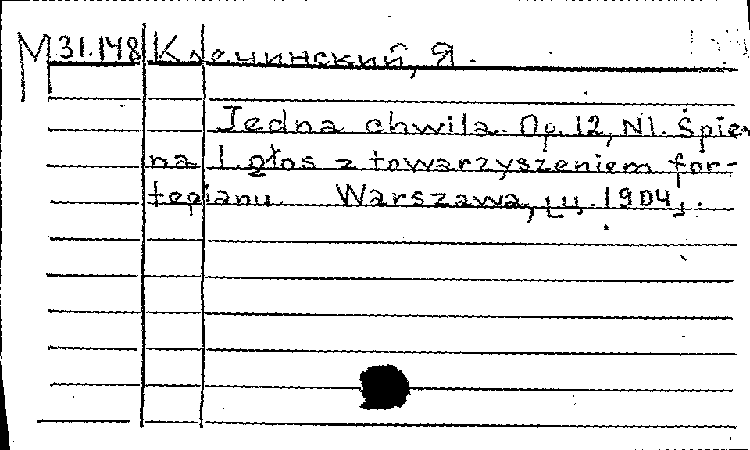 М 31.148 Клечинский, Я.
Jedna chwila. Op. 12, N1. Śpiew
na 1 głos z towarzyszeniem for-
tepianu. Warszawa, ц. 1904,.